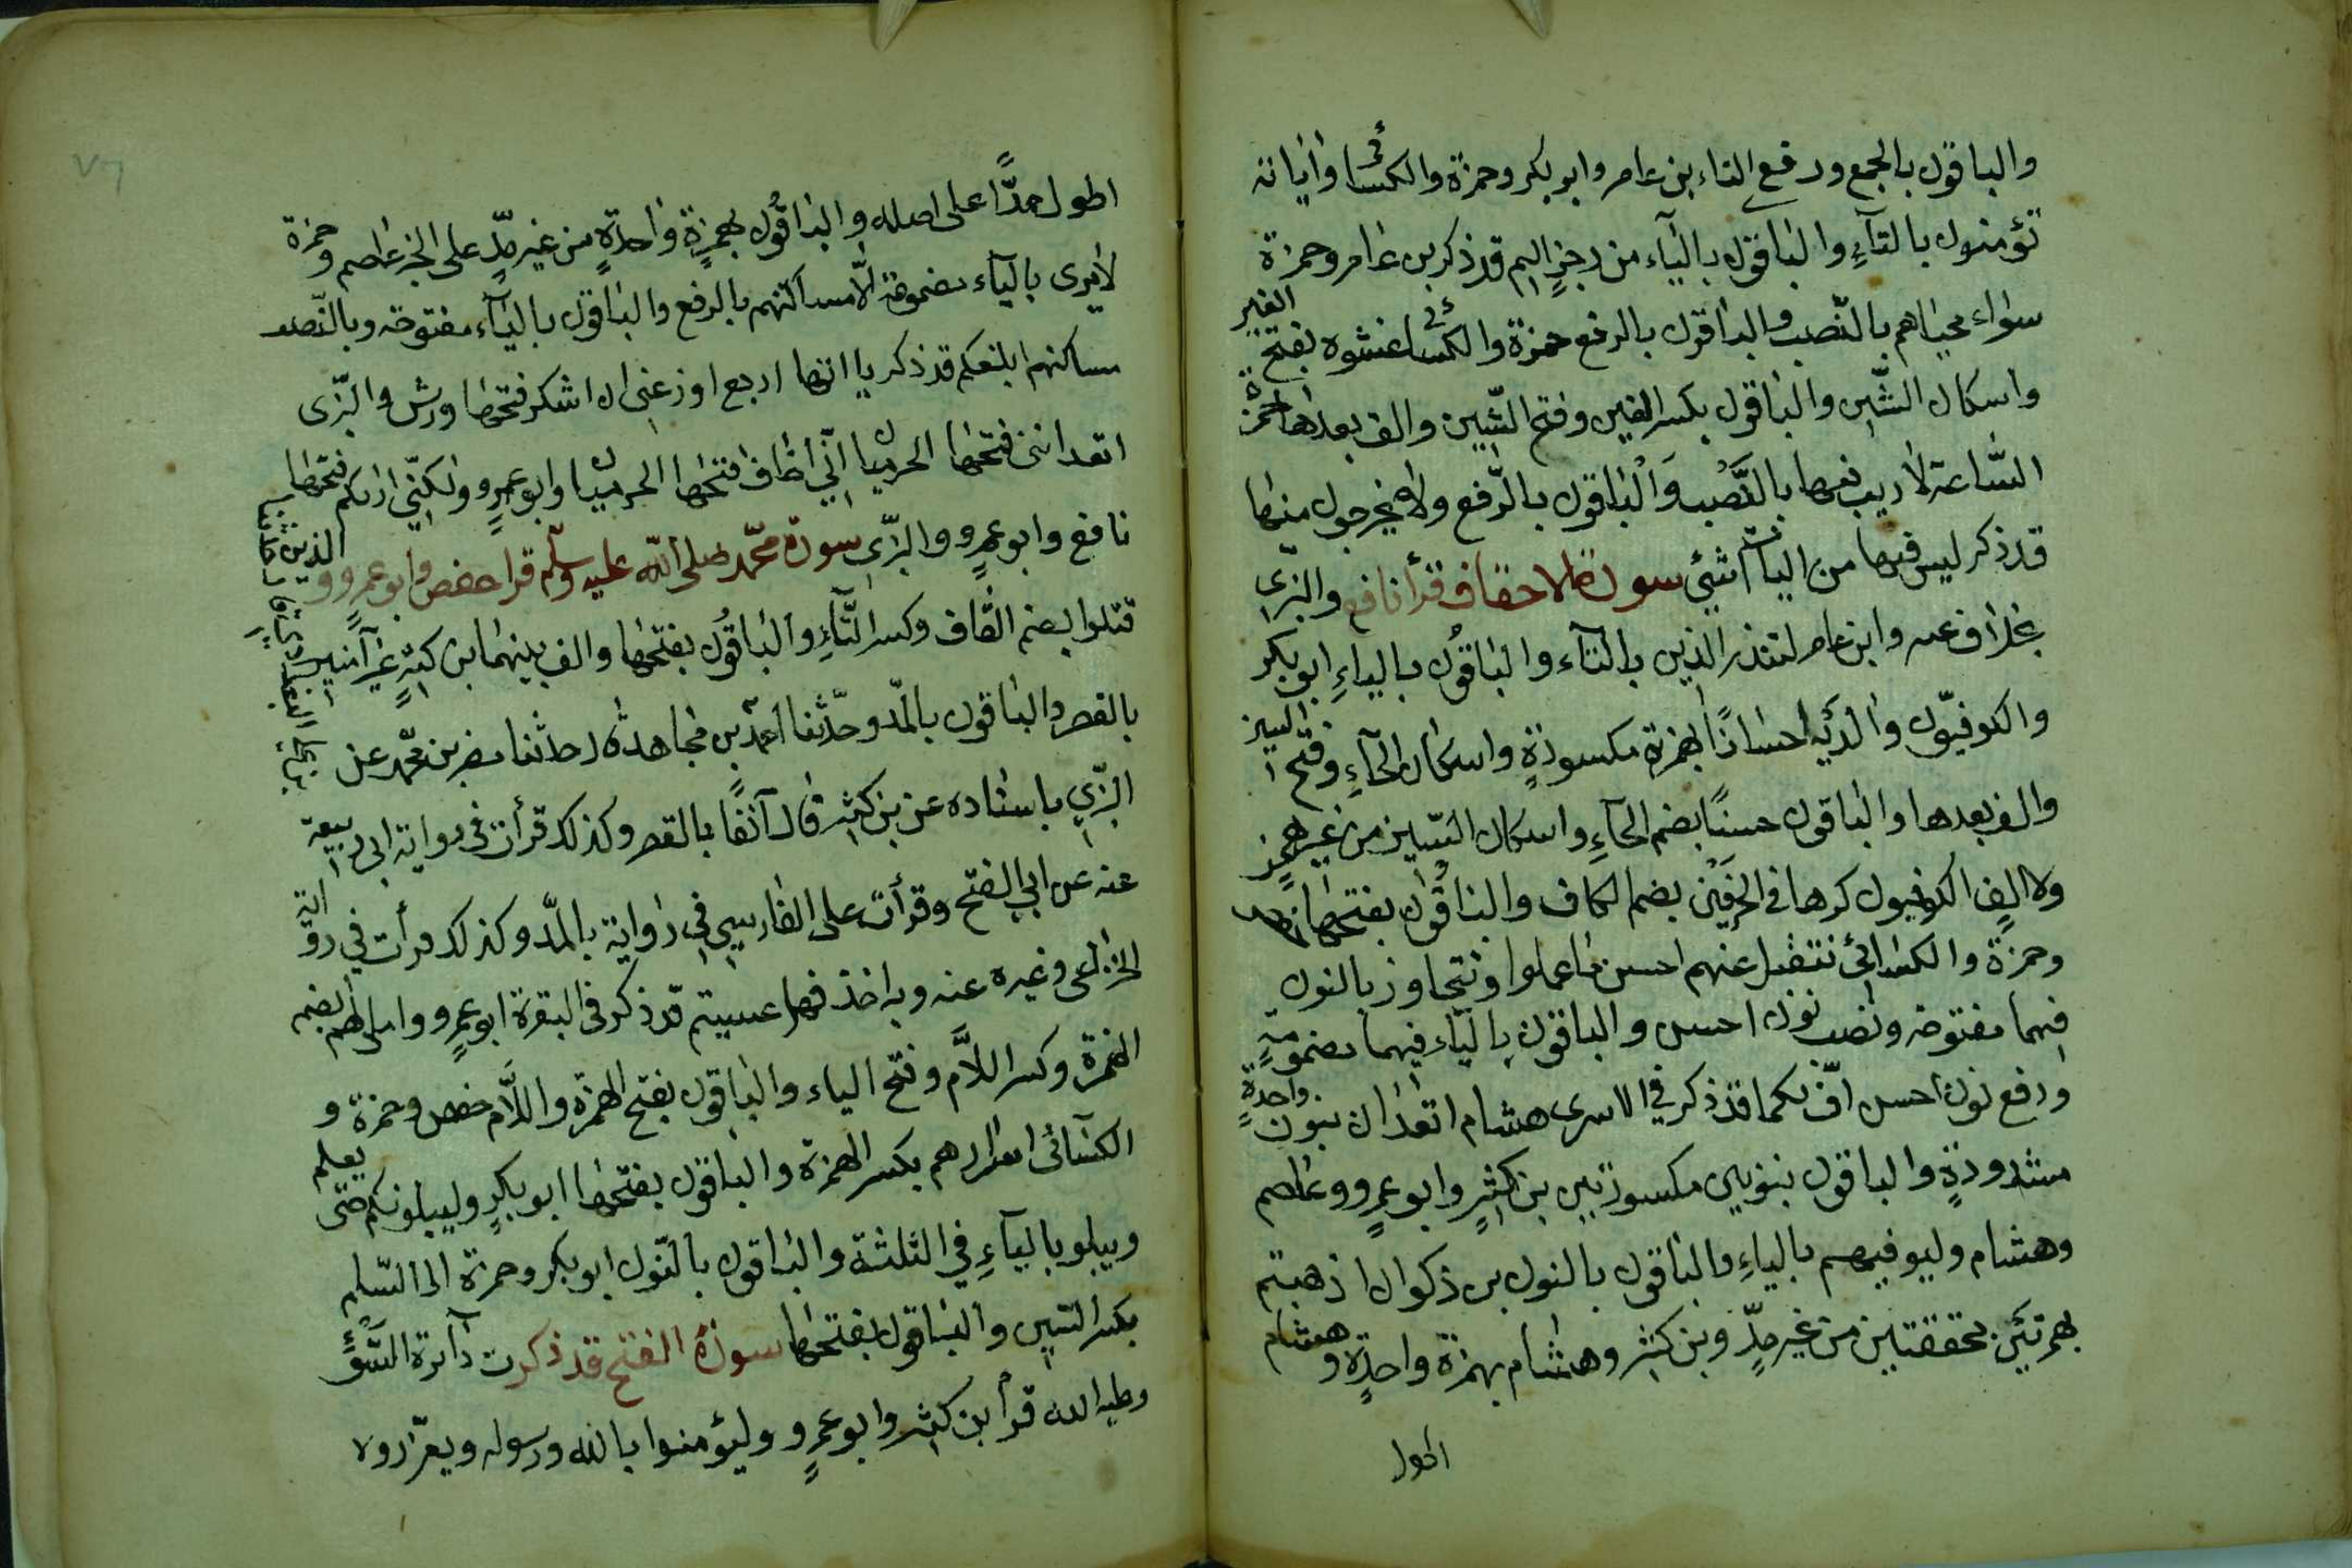 والباقون بالجمع ورفع التاء بن عامر وابو بكر وحمزة والكسائي واياته
تؤمنون بالتآءِ والباقون باليآء من رجزٍ اليم قد ذكر بن عامر وحمزة
سواء محياهم بالنّصب والباقون بالرفع حمزة والكسائي غشوه بفتح الغين
واسكان الشّين والباقون بكسر الغين وفتح الشّين والف بعدها حمزة
السّاعة لا ريب فيها بالنَّصْب وَالْباقون بالرّفع ولا يخرجون منها
قد ذكر ليس فيها من اليآات شيئ سورة الاحقاف قرأ نافع والبزّي
بخلاف عنه وابن عامر لتنذر الذين بالتآء والباقُون بالياءِ ابو بكر
والكوفيّون والديه احسانًا بهمزة مكسورةٍ واسكان الحآءِ وفتح السين
والف بعدها والباقون حسنًا بضم الحآءِ واسكان السّين من غير همزٍ
ولا الفٍ الكوفيون كرها في الحرفَيْن بضم الكاف والباقُون بفتحها
وحمزة والكسائي نتقبل عنهم احسن ما عملوا ونتجاوز بالنون
فيهما مفتوحة ونصب نون احسن والباقون باليآء فيهما مضمومةٍ
ورفع نون احسن افّ لكما قد ذكر في الاسرى هشام اتعدان بنون واحدةٍ
مشدودةٍ والباقون بنونين مكسورتين بن كثيرٍ وابو عمرٍو وعاصم
وهشام وليوفيهم بالياءِ والباقون بالنون بن ذكوان اذهبتم
بهمزتَين محققتين من غير مدٍّ وبن كثير وهشام بهمزة واحدةٍ وهشام
اطول
اطول مدًّا على اصله والباقُون بهمزةٍ واحدةٍ من غير مدٍّ على الخبر عاصم وحمزة
لا يرى باليآء مضمومة الّا مساكنهم بالرفع والباقون باليآء مفتوحة وبالنّصب
مساكنهم ابلغكم قد ذكر يااتها اربع اوزعني ان اشكر فتحها ورش والبزّي
اتعدانني فتحها الحرميان انّي اخاف فتحها الحرميان وابو عمرٍو ولكنّي اريكم فتحها
نافع وابو عمرٍو والبزّي سورة محمّد صلى الله عليه وسلّم قرا حفص وابو عمرٍو والذين
قتلوا بضم القّاف وكسر التّآءِ والباقُون بفتحها والف بينهما بن كثيرٍ غير آسنٍ
بالقصر والباقون بالمدّ وحدّثنا احمد بن مجاهد حدثنا مضر بن محمّد عن
البزّي باسناده عن بن كثير قال آنفًا بالقصر وكذلك قرأت في رواية ابي ربيعة
عنه عن ابي الفتح وقرأت على الفارسي في رواية بالمدّ وكذلك قرأت في رواية
الخزاعي وغيره عنه وبه اخذ فهل عسيتم قد ذكر في البقرة ابو عمرٍو واملى لهم بضم
الهمزة وكسر اللاّم وفتح الياء والباقون بفتح الهمزة واللّام حفص وحمزة و
الكسائي اسرارهم بكسر الهمزة والباقون بفتحها ابو بكرٍ وليبلونكم حتى يعلم
ويبلو باليآءِ في الثلثة والباقون بالنّون ابو بكر وحمزة الى السّلم
بكسر السّين والباقون بفتحها سورة الفتح قد ذكرت دآئرة السَّوْء
وعليه الله قرأ بن كثير وابو عمرٍو وليؤمنوا بالله ورسوله ويعزّروه